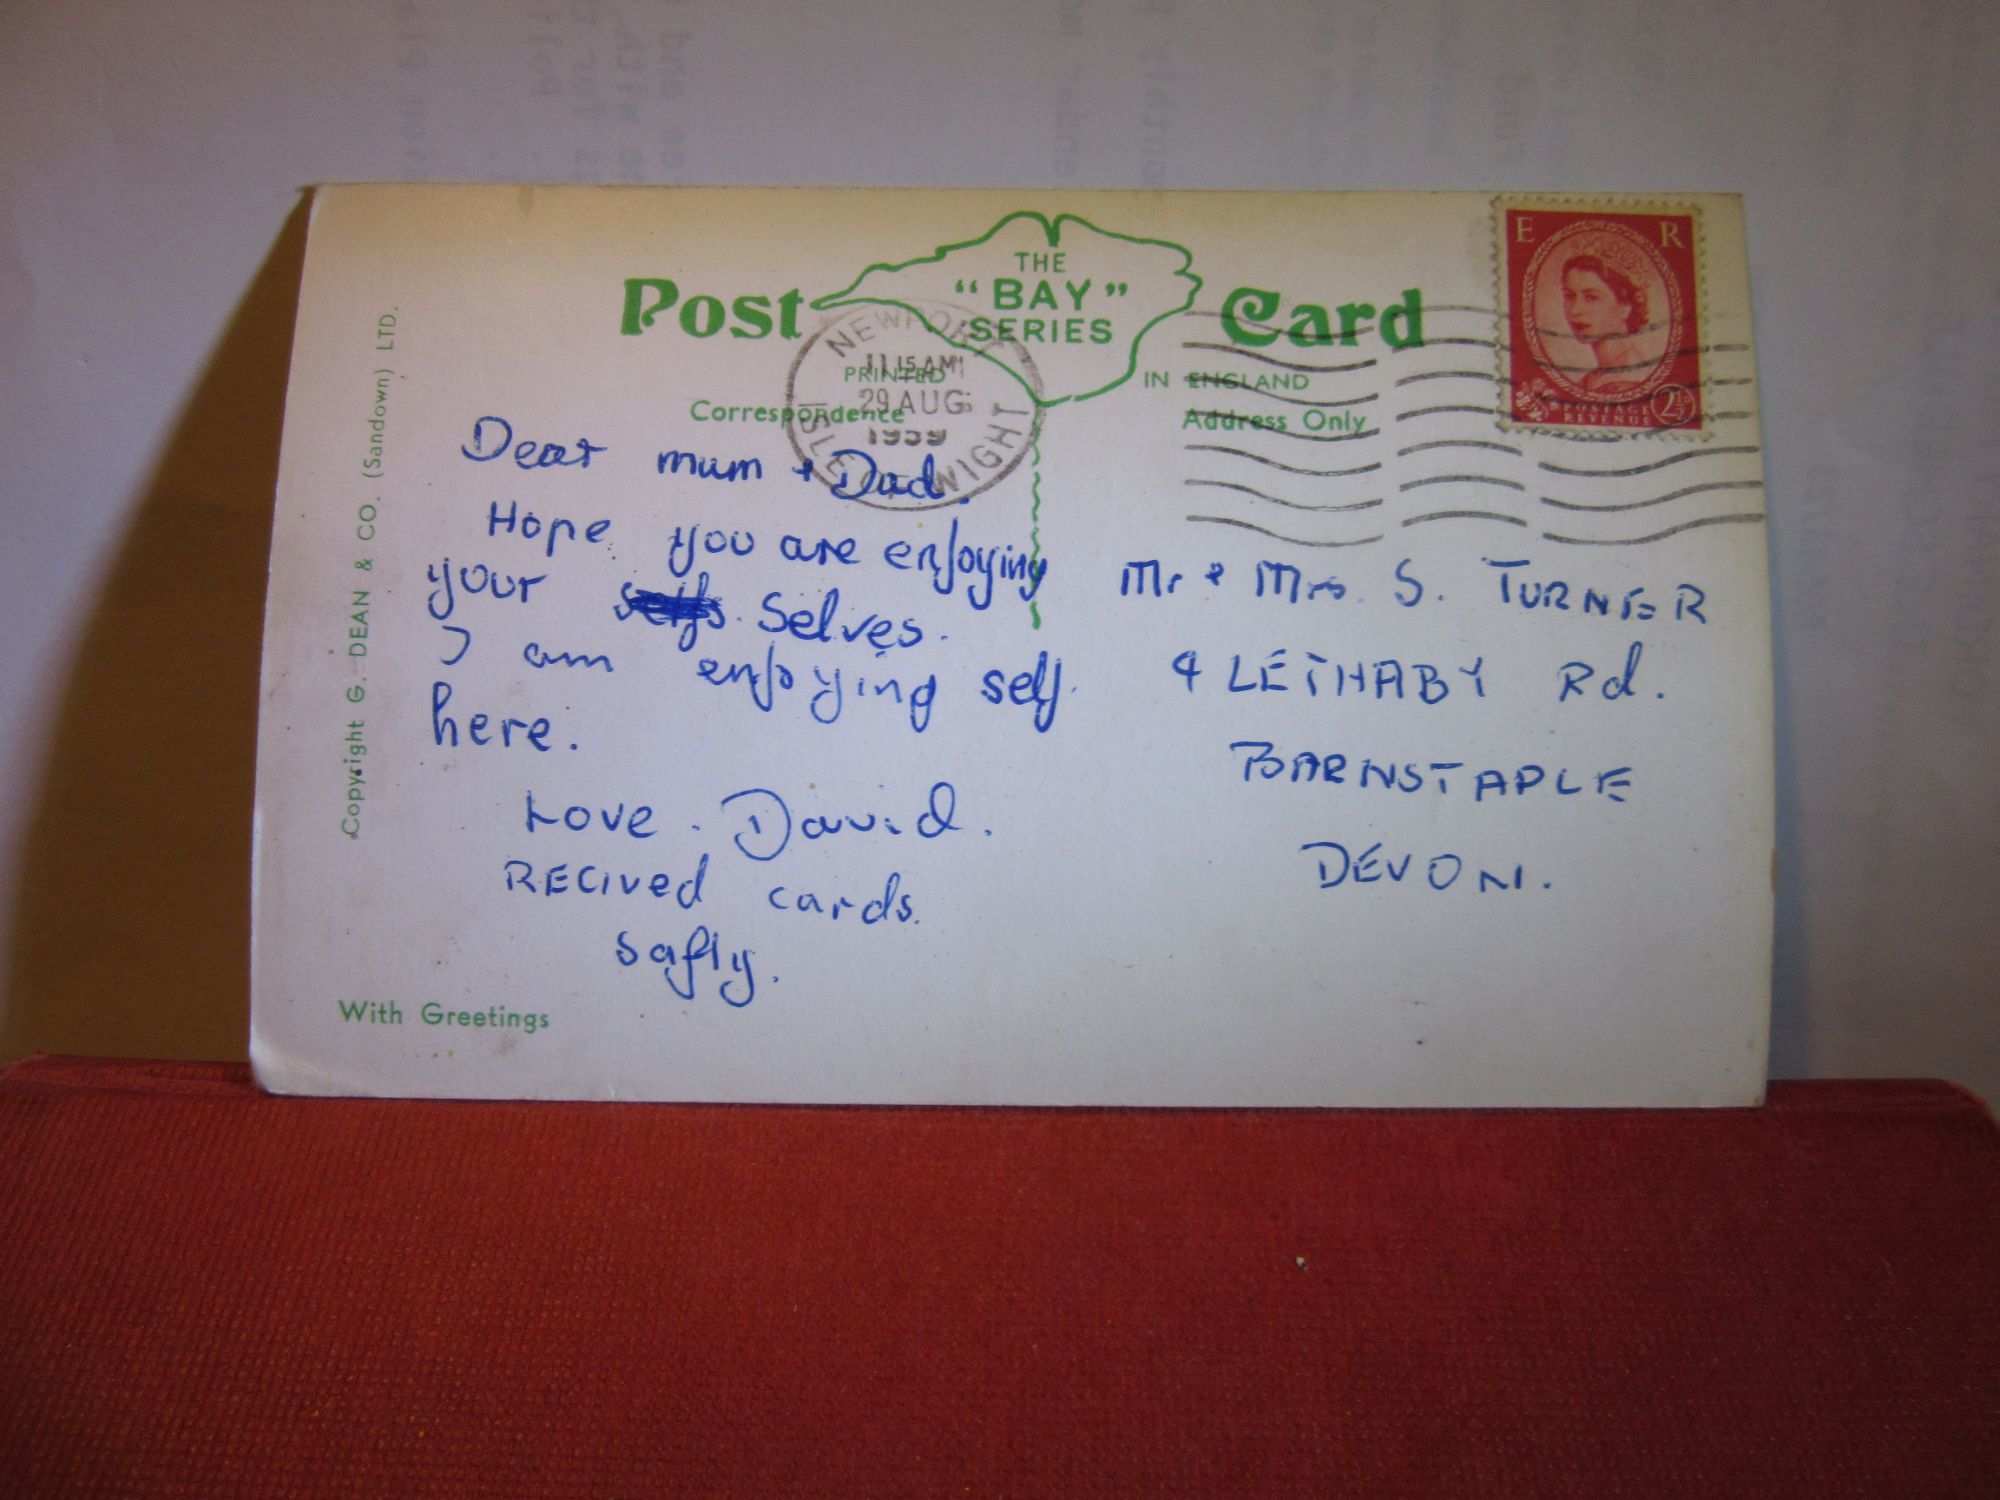 Post Card
THE
"BAY"
SERIES
PRINTED IN ENGLAND
Correspondence
Address Only
NEWPORT
11 15 AM
29 AUG
1959
ISLE OF WIGHT
E R
POSTAGE
REVENUE
2½
Dear mum + Dad.
Hope you are enjoying
your selfs. Selves.
I am enjoying self
here.
Love. David.
RECived cards.
safly.
Mr & Mrs. S. TURNER
4 LETHABY Rd.
BARNSTAPLE
DEVON.
Copyright G. DEAN & CO. (Sandown) LTD.
With Greetings